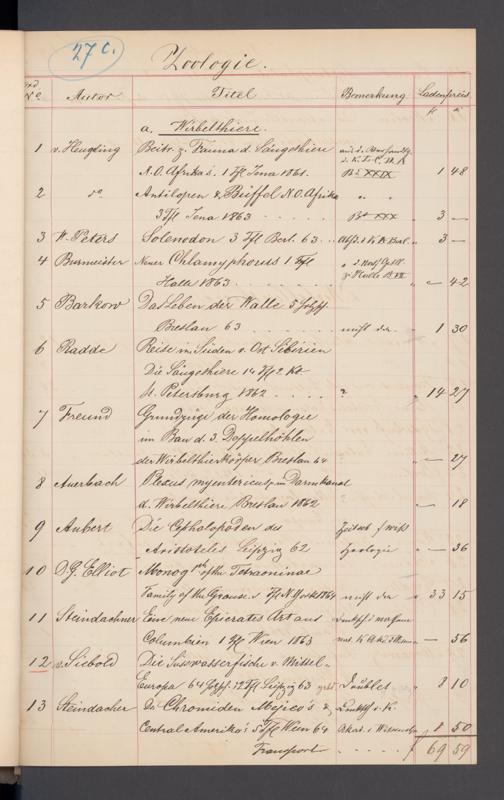 27 c.
Zoologie.
No. Autor Titel Bemerkung Ladenpreis
a. Wirbelthiere.
1 v. Heugling Beitr. z. Fauna d. Säugethiere
N.O. Afrika's. 1 Tfl Jena 1861. Bd XXIX 1 48
2 do Antilopen & Büffel N.O. Afrika " "
3 Tfl Jena 1863 Bd XXX " 3 —
3 W. Peters Solenodon 3 Tfl Berl. 63 " 3 —
4 Burmeister Neuer Chlamyphorus 1 Tfl
Halle 1863 z. Halle " — 42
5 Barkow Das Leben der Walle
Breslau 63 " 1 30
6 Radde Reise im Süden v. Ost Sibirien
Die Säugethiere 14 Tfl 2 Kt.
St. Petersburg 1862 ? " 14 27
7 Freund Grundzüge der Homologie
im Bau d. 3. Doppelhöhlen
der Wirbelthierkörper Breslau 64 ? " — 27
8 Auerbach Plexus myentericus im Darmkanal
d. Wirbelthiere Breslau 1862 — 18
9 Aubert Die Cephalopoden des Zeitsch f wiss
Aristoteles Leipzig 62 Zoologie " — 36
10 D.G. Elliot Monogrph of the Tetraoninae
Family of the Grouse. N.York 1864 " 33 15
11 Steindachner Eine neue Art aus
Columbien 1 Tfl Wien 1863 " — 56
12 v. Siebold Die Süsswasserfische v. Mittel-
Europa 64 12 Tfl Leipzig 63 Doublet " 8 10
13 Steindacher Die Chromiden Mejico's &
Central Amerika's 5 Tfl Wien 64 Akad. " 8 50
Transport f 69 59